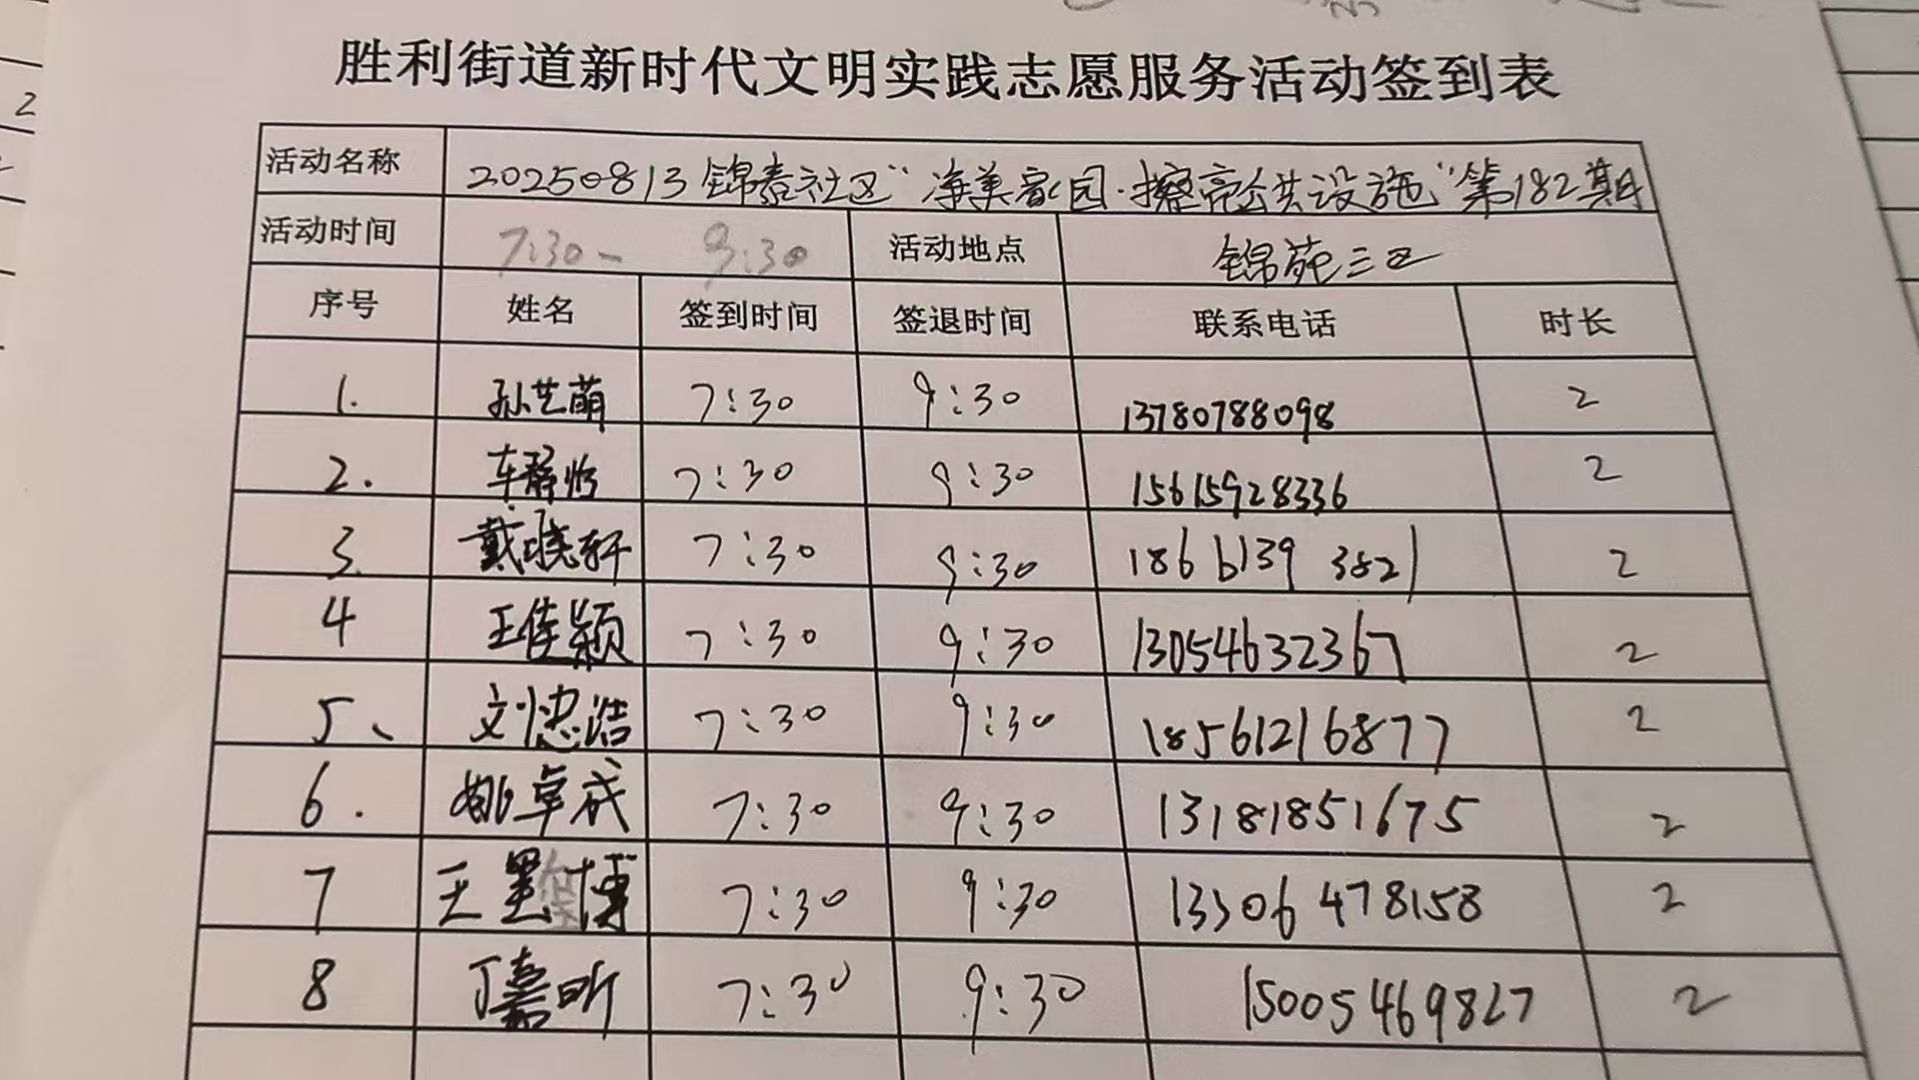 胜利街道新时代文明实践志愿服务活动签到表
活动名称 20250813锦泰社区“净美家园·擦亮公共设施”第182期
活动时间 7:30- 9:30 活动地点 锦苑三区
序号 姓名 签到时间 签退时间 联系电话 时长
1. 孙艺萌 7:30 9:30 13780788098 2
2. 车静怡 7:30 9:30 15615928336 2
3. 戴晓轩 7:30 9:30 18661393821 2
4 王佳颖 7:30 9:30 13054632367 2
5、 刘忠浩 7:30 9:30 18561216877 2
6. 姚卓成 7:30 9:30 13181851675 2
7 王墨博 7:30 9:30 13306478158 2
8 丁嘉昕 7:30 9:30 15005469827 2